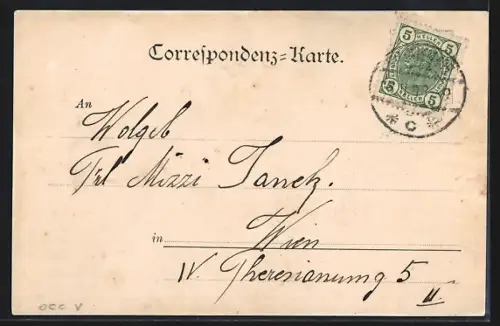 Correspondenz-Karte.
5 HELLER 5
5 HELLER 5
* C *
An
Wolgeb
Frl Mizzi Janek.
in Wien
IV. Theresianumg 5
II.
OCC V